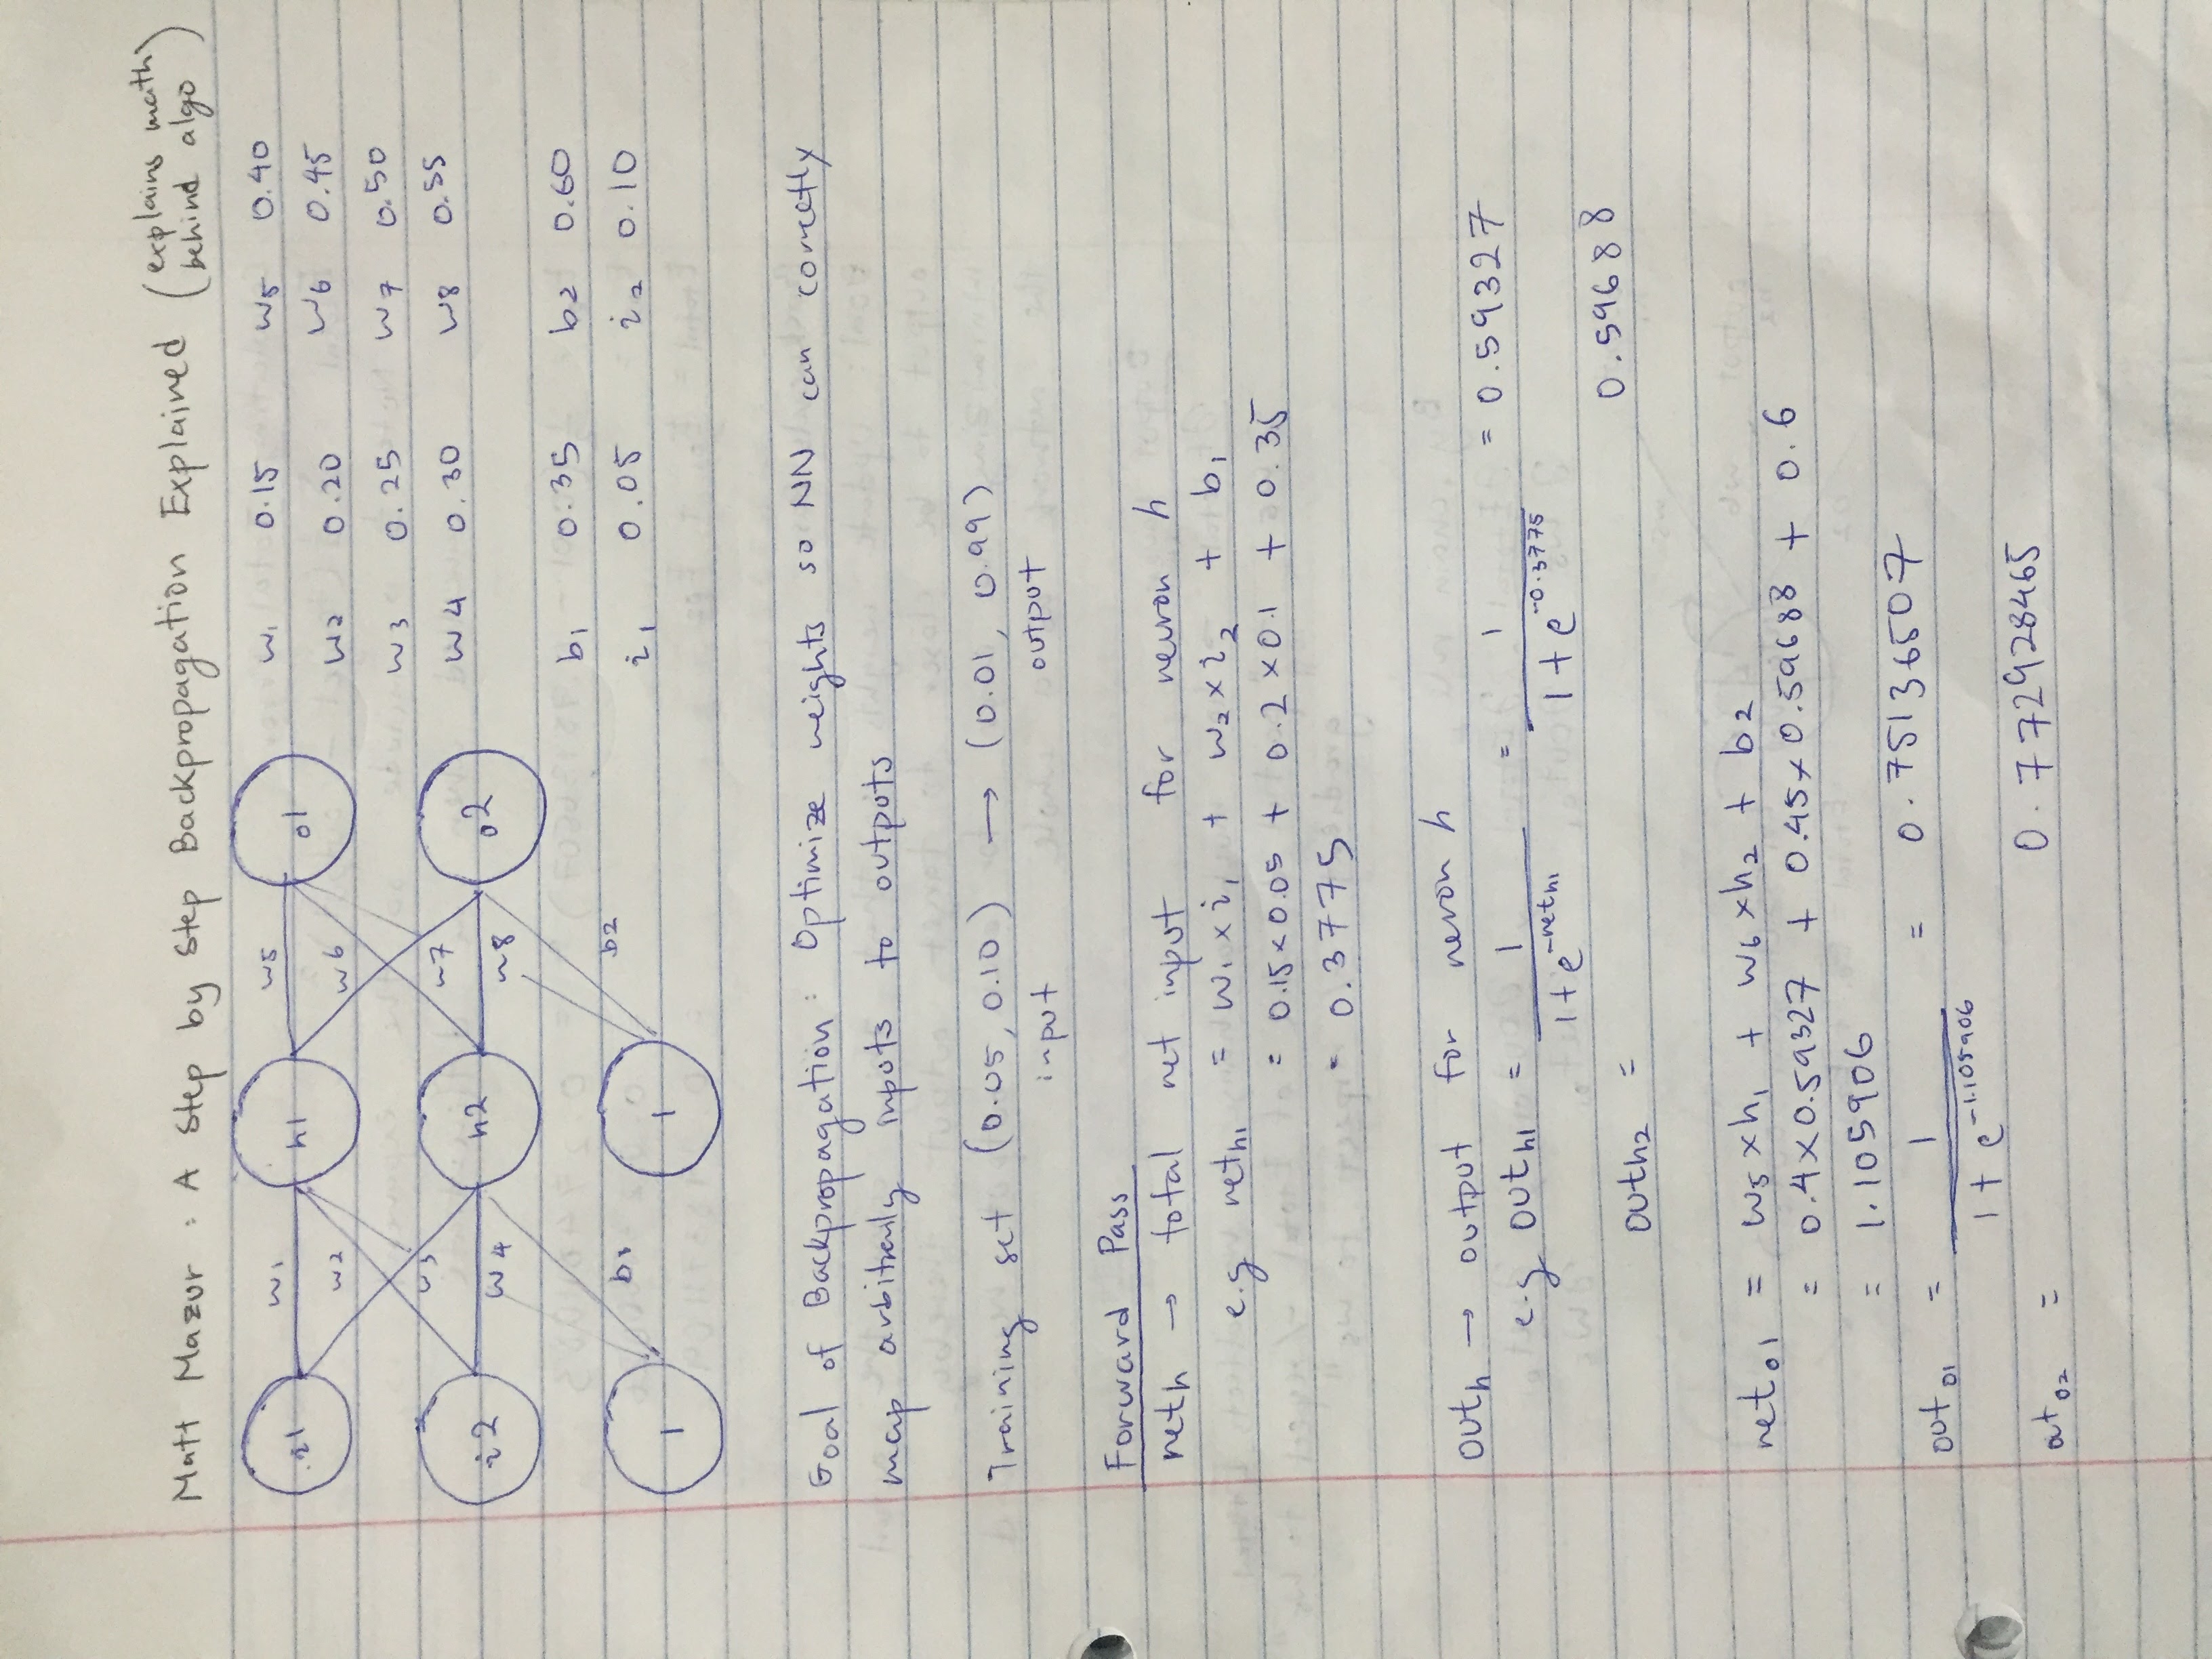 Matt Mazur : A Step by Step Backpropagation Explained (explains math behind algo)
i1 w1 h1 w5 o1 w1 0.15 w5 0.40
w2 w6 w2 0.20 w6 0.45
w3 w7 w3 0.25 w7 0.50
i2 w4 h2 w8 o2 w4 0.30 w8 0.55
b1 0.35 b2 0.60
b1 b2 i1 0.05 i2 0.10
1 1
Goal of Backpropagation : Optimize weights so NN can correctly
map arbitrarily inputs to outputs
Training set (0.05, 0.10) → (0.01, 0.99)
input output
Forward Pass
neth → total net input for neuron h
e.g neth1 = w1 × i1 + w2 × i2 + b1
= 0.15 × 0.05 + 0.2 × 0.1 + 0.35
= 0.3775
outh → output for neron h
e.g outh1 = 1 / 1 + e^-neth1 = 1 / 1 + e^-0.3775 = 0.59327
outh2 = 0.59688
neto1 = w5 × h1 + w6 × h2 + b2
= 0.4 × 0.59327 + 0.45 × 0.59688 + 0.6
= 1.105906
outo1 = 1 / 1 + e^-1.105906 = 0.75136507
outo2 = 0.772928465